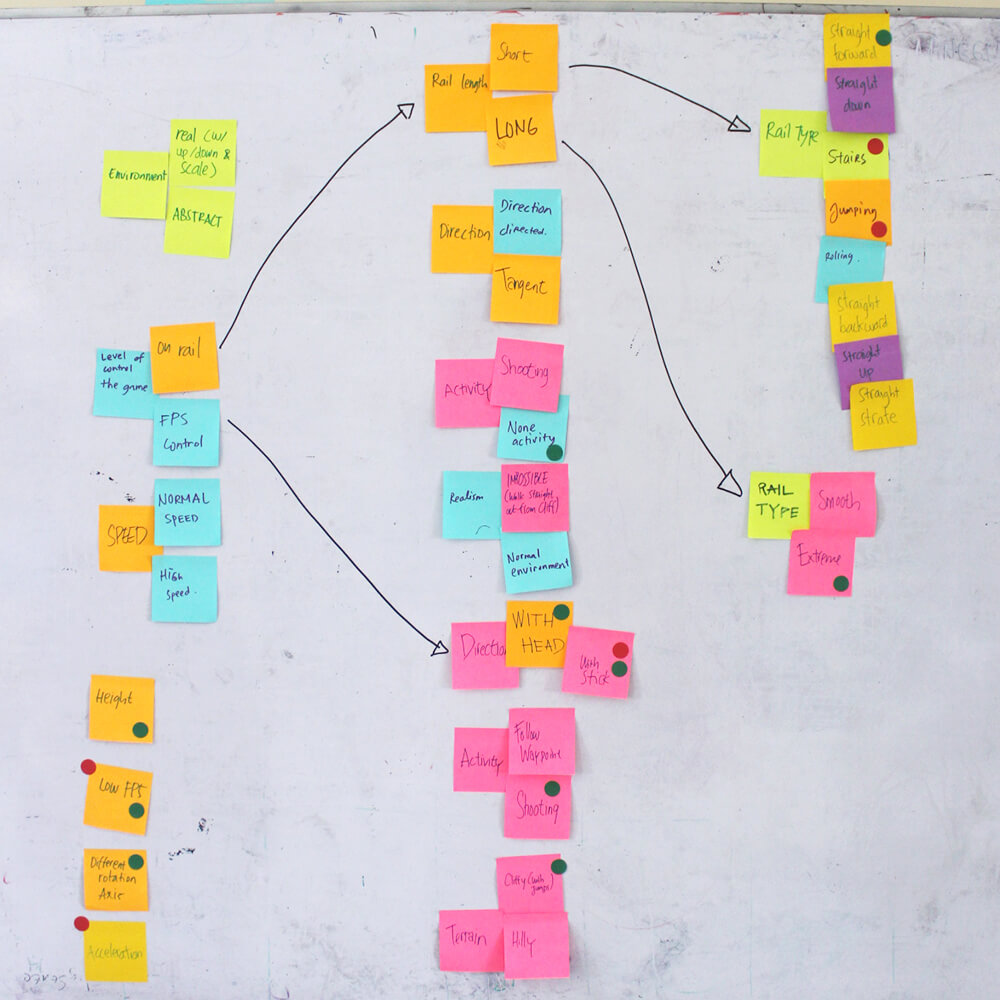 Environment
real (w/
up/down &
scale)
ABSTRACT
Level of
control
the game
on rail
FPS
control
SPEED
NORMAL
SPEED
High
speed.
Height
Low FPS
Different
rotation
Axis
Acceleration
Rail length
Short
LONG
Direction
Direction
directed.
Tangent
Activity
Shooting
None
activity
Realism
IMPOSSIBLE
(Walk straight
out from cliff)
Normal
environment
Directio
WITH
HEAD
With
Stick
Activity
Follow
Waypoint
Shooting
Cliffy (with
jumps)
Terrain
Hilly
Straight
forward
Straight
down
Rail Type
Stairs
Jumping
Rolling.
Straight
backward
Straight
up
Straight
strafe
RAIL
TYPE
Smooth
Extreme